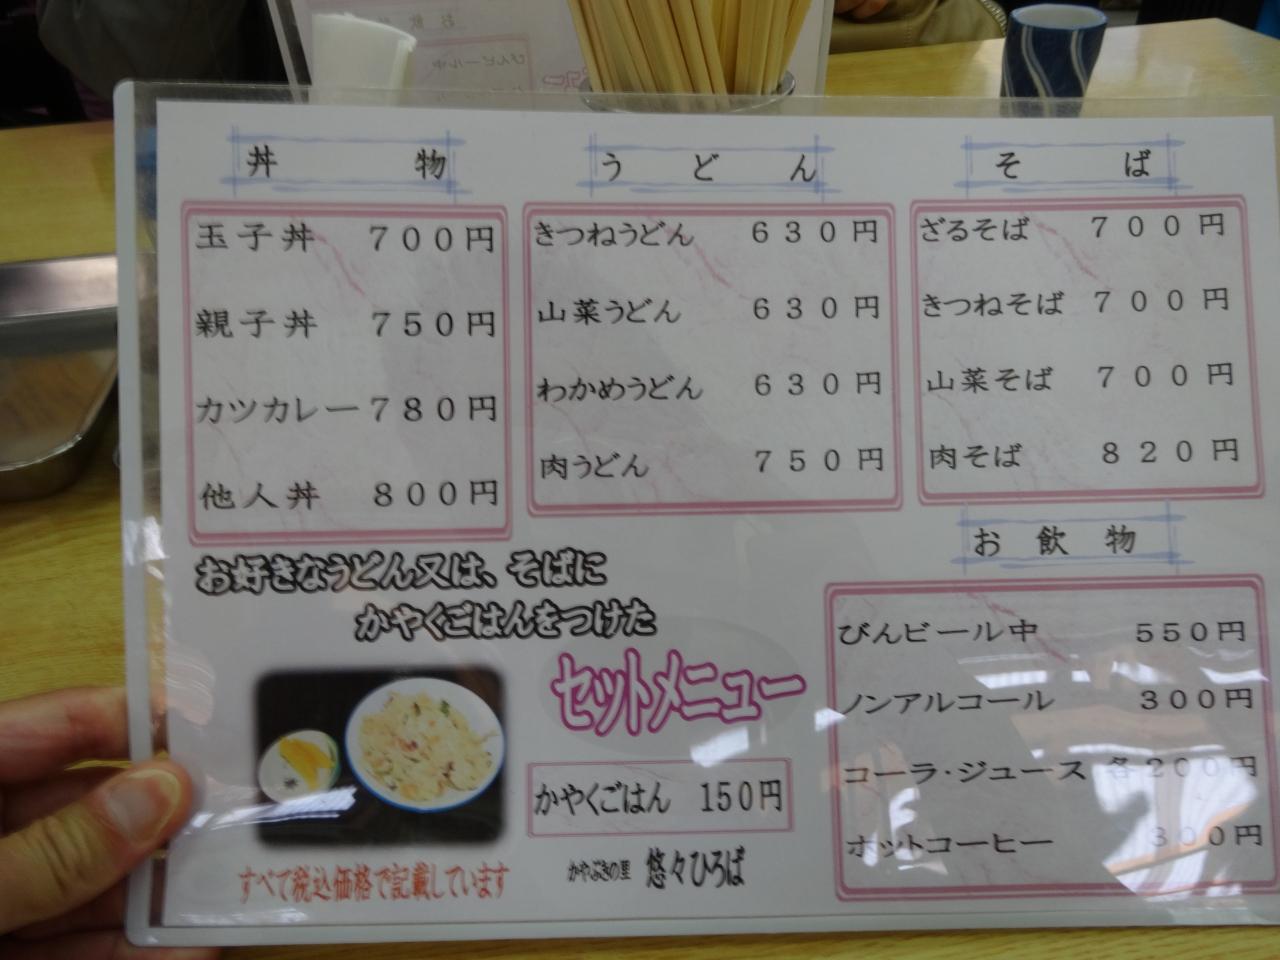 丼物
玉子丼 700円
親子丼 750円
カツカレー 780円
他人丼 800円
うどん
きつねうどん 630円
山菜うどん 630円
わかめうどん 630円
肉うどん 750円
そば
ざるそば 700円
きつねそば 700円
山菜そば 700円
肉そば 820円
お好きなうどん又は、そばに
かやくごはんをつけた
セットメニュー
かやくごはん 150円
すべて税込価格で記載しています
かやぶきの里 悠々ひろば
お飲物
びんビール中 550円
ノンアルコール 300円
コーラ・ジュース 各200円
ホットコーヒー 300円